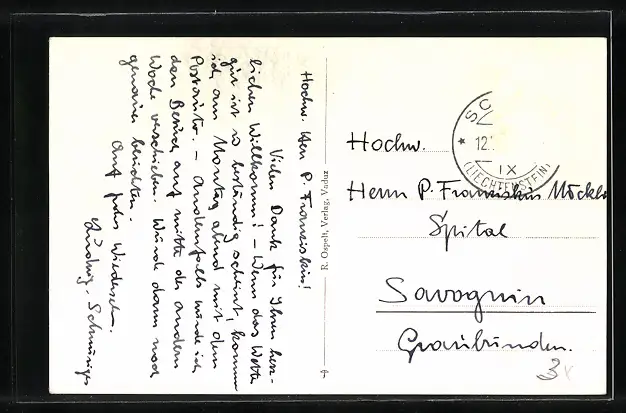 Hochw. Herr P. Franziskus!
Vielen Dank für Ihren herz-
lichen Willkomm! – Wenn das Wetter
gut ist u. beständig scheint, komme
ich am Montag abend mit dem
Postauto. – Andernfalls würde ich
den Besuch auf mitte der andern
Woche verschieben. Würde dann noch
genauer berichten.
Auf frohes Wiedersehn.
Ludwig
R. Ospelt, Verlag, Vaduz
SC
* 12.
IX
(LIECHTENSTEIN)
Hochw.
Herrn P. Franziskus Möckli
Spital
Savognin
Graubünden.
3